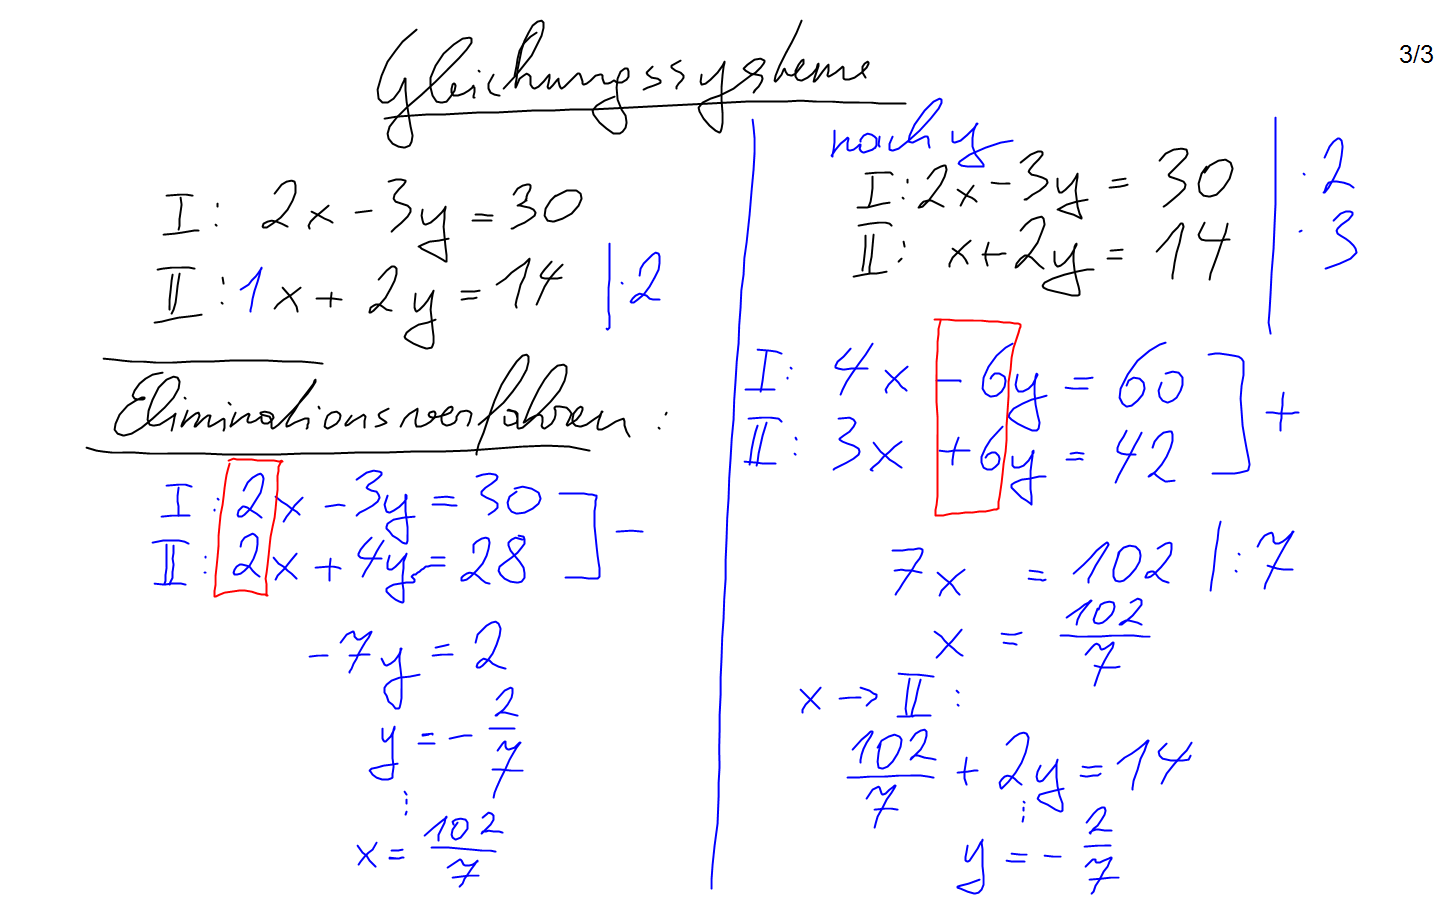 Gleichungssysteme
3/3
I: 2x - 3y = 30
II: 1x + 2y = 14 | ·2
Eliminationsverfahren:
I: 2x - 3y = 30
II: 2x + 4y = 28 ] -
-7y = 2
y = - 2/7
⋮
x = 102/7
nach y
I: 2x - 3y = 30 | ·2
II: x + 2y = 14 | ·3
I: 4x - 6y = 60
II: 3x + 6y = 42 ] +
7x = 102 | :7
x = 102/7
x → II:
102/7 + 2y = 14
⋮
y = - 2/7